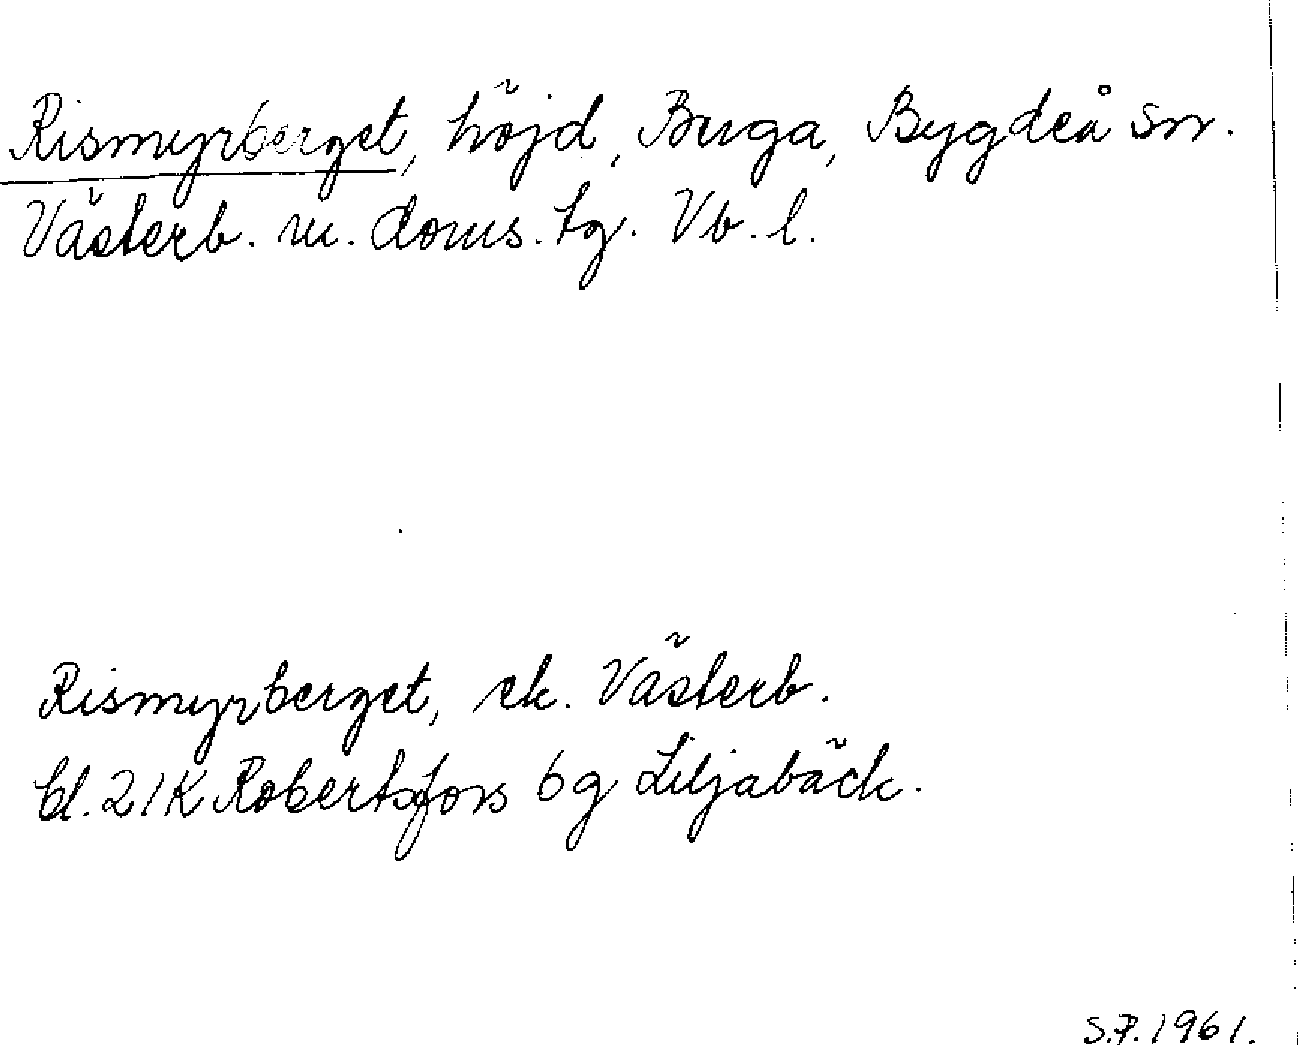 Rismyrberget, höjd, Buga, Bygdeå sn.
Västerb. m. doms. tg. Vb. l.
Rismyrberget, ek. Västerb.
bl. 21K Robertsfors 6g Liljabäck.
S.P. 1961.